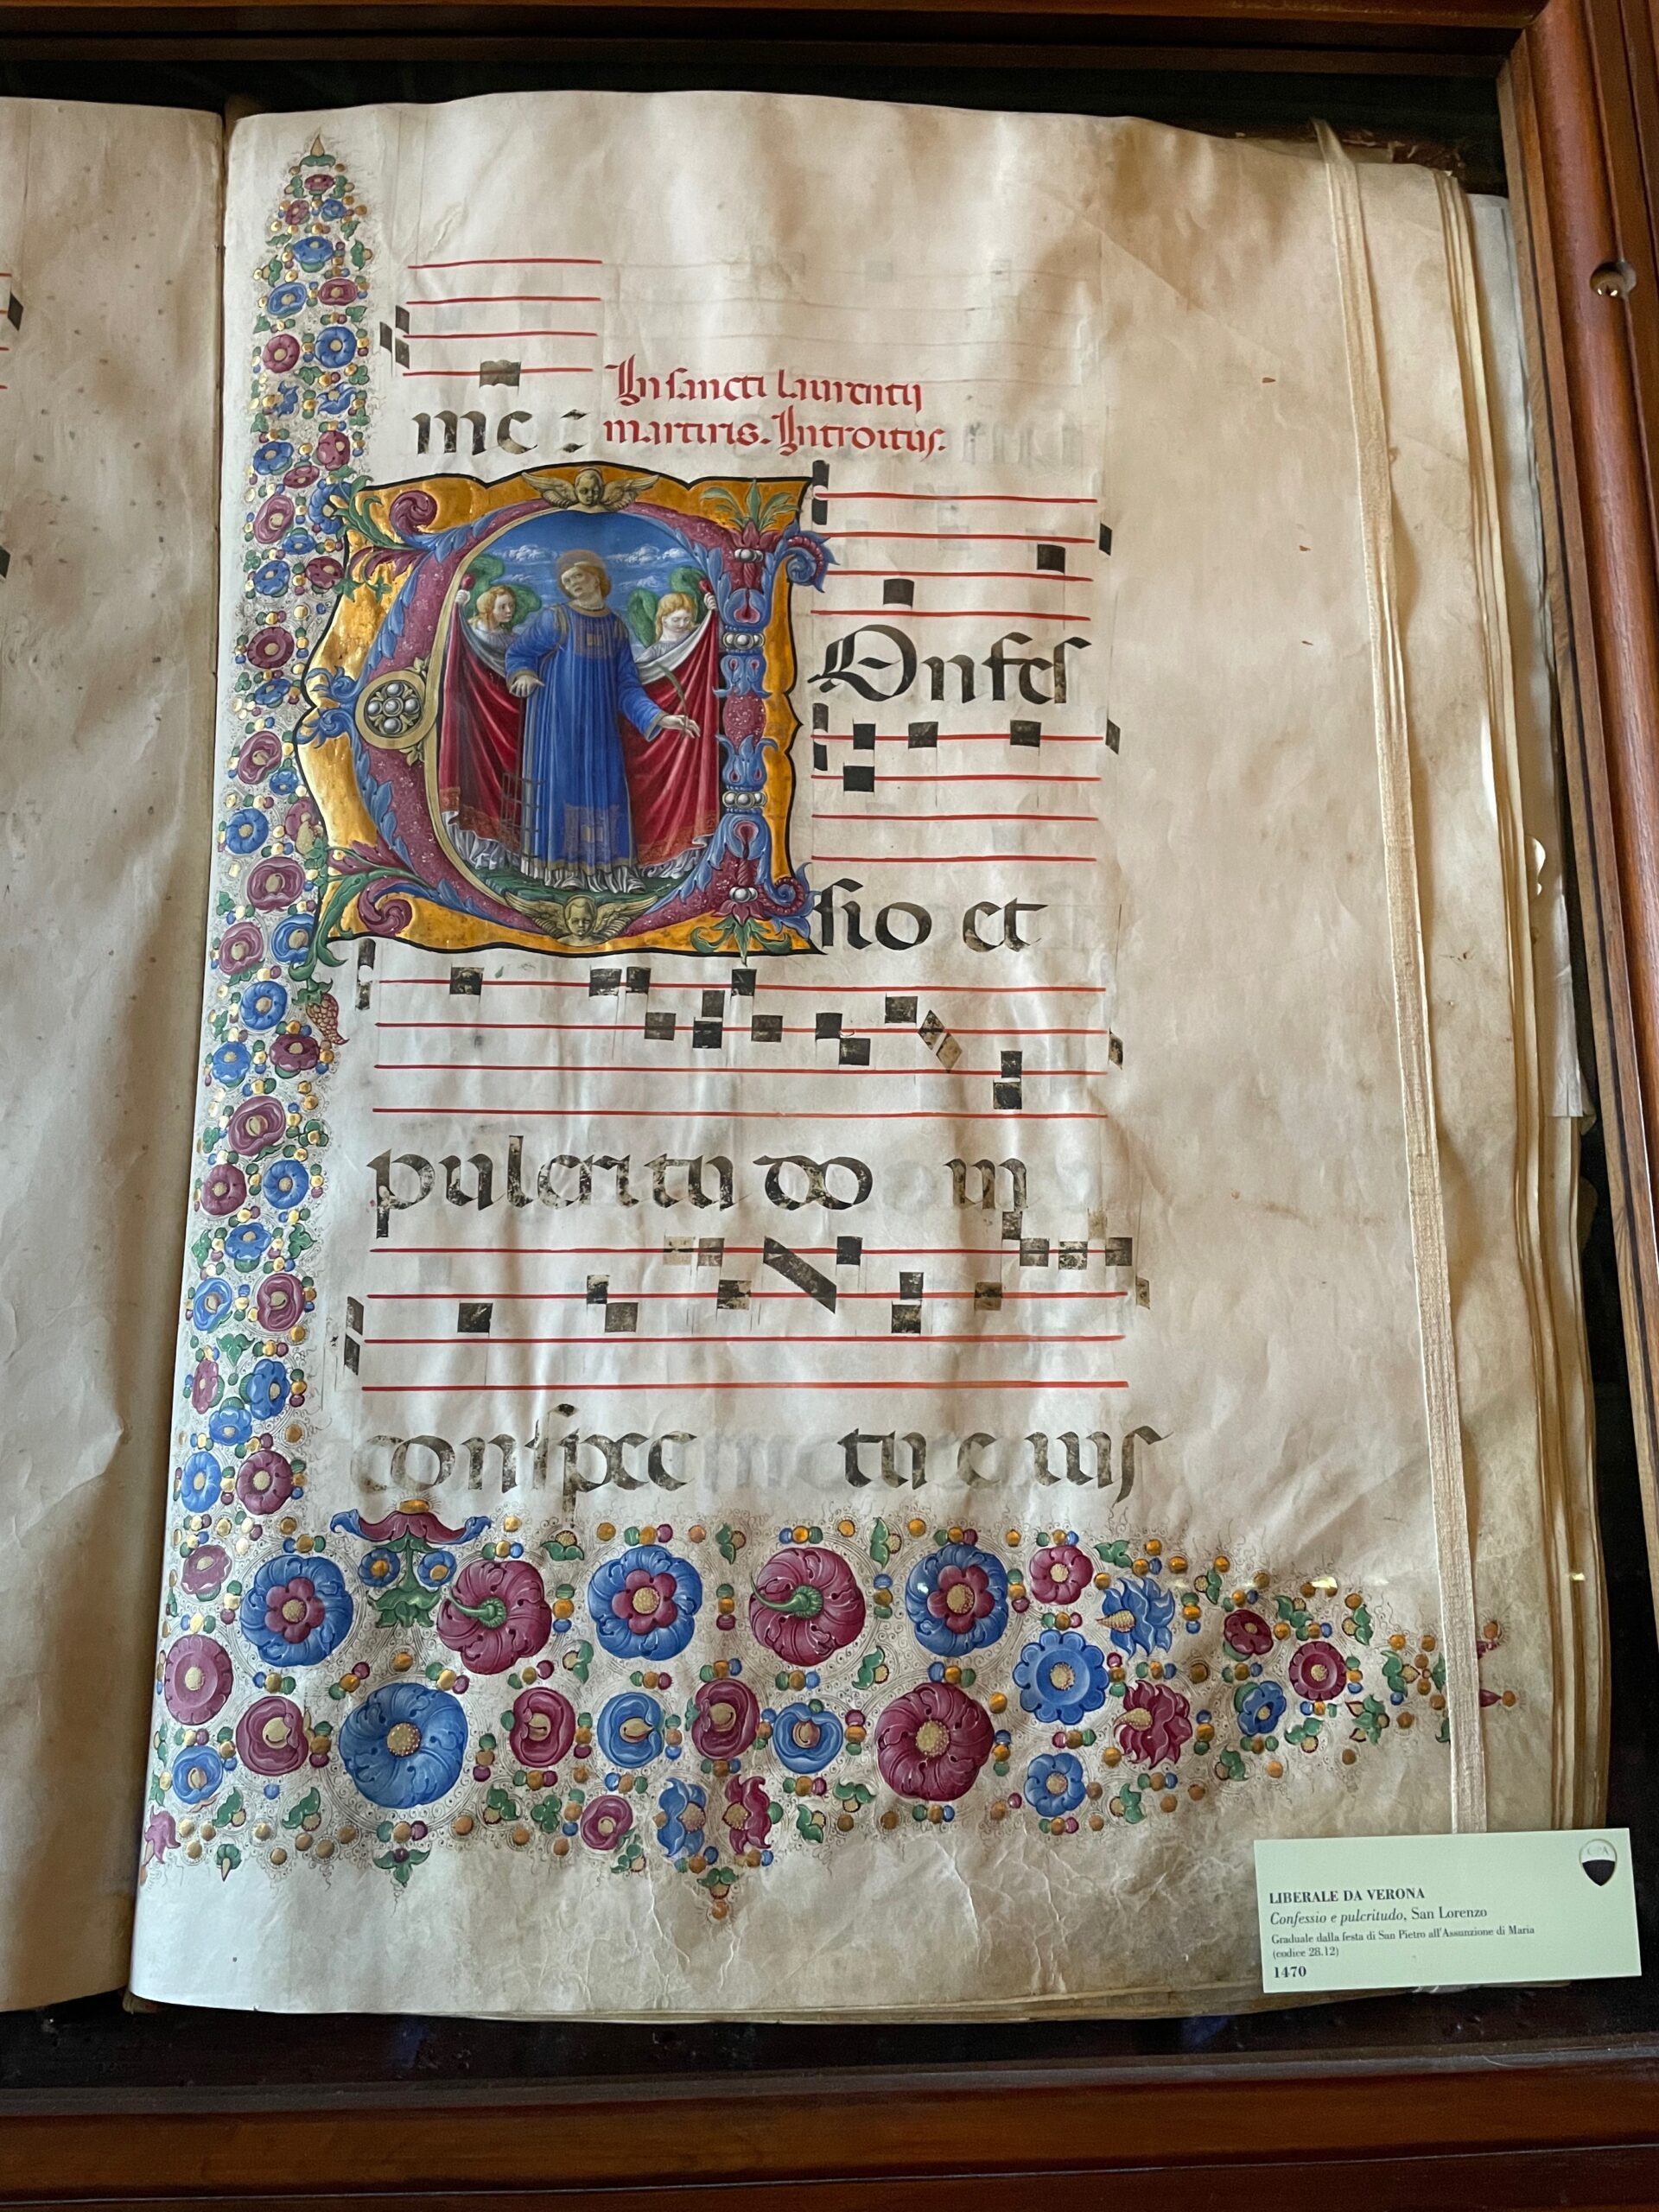 me :
In sancti laurentij
martiris. Introitus.
COnfes
sio et
pulcritudo in
conspectu eius
LIBERALE DA VERONA
Confessio e pulcritudo, San Lorenzo
Graduale dalla festa di San Pietro all'Assunzione di Maria
(codice 28.12)
1470